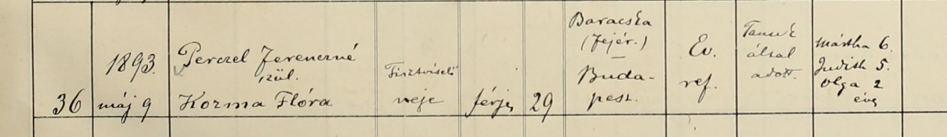 36
1893.
máj 9
Perczel Ferenczné
szül.
Kozma Flóra
Tisztviselő
neje
férjes
29
Baracska
(Fejér.)
—
Buda-
pest.
Ev.
ref.
által
adott.
Mártha 6.
Judith 5.
Olga 2
éves